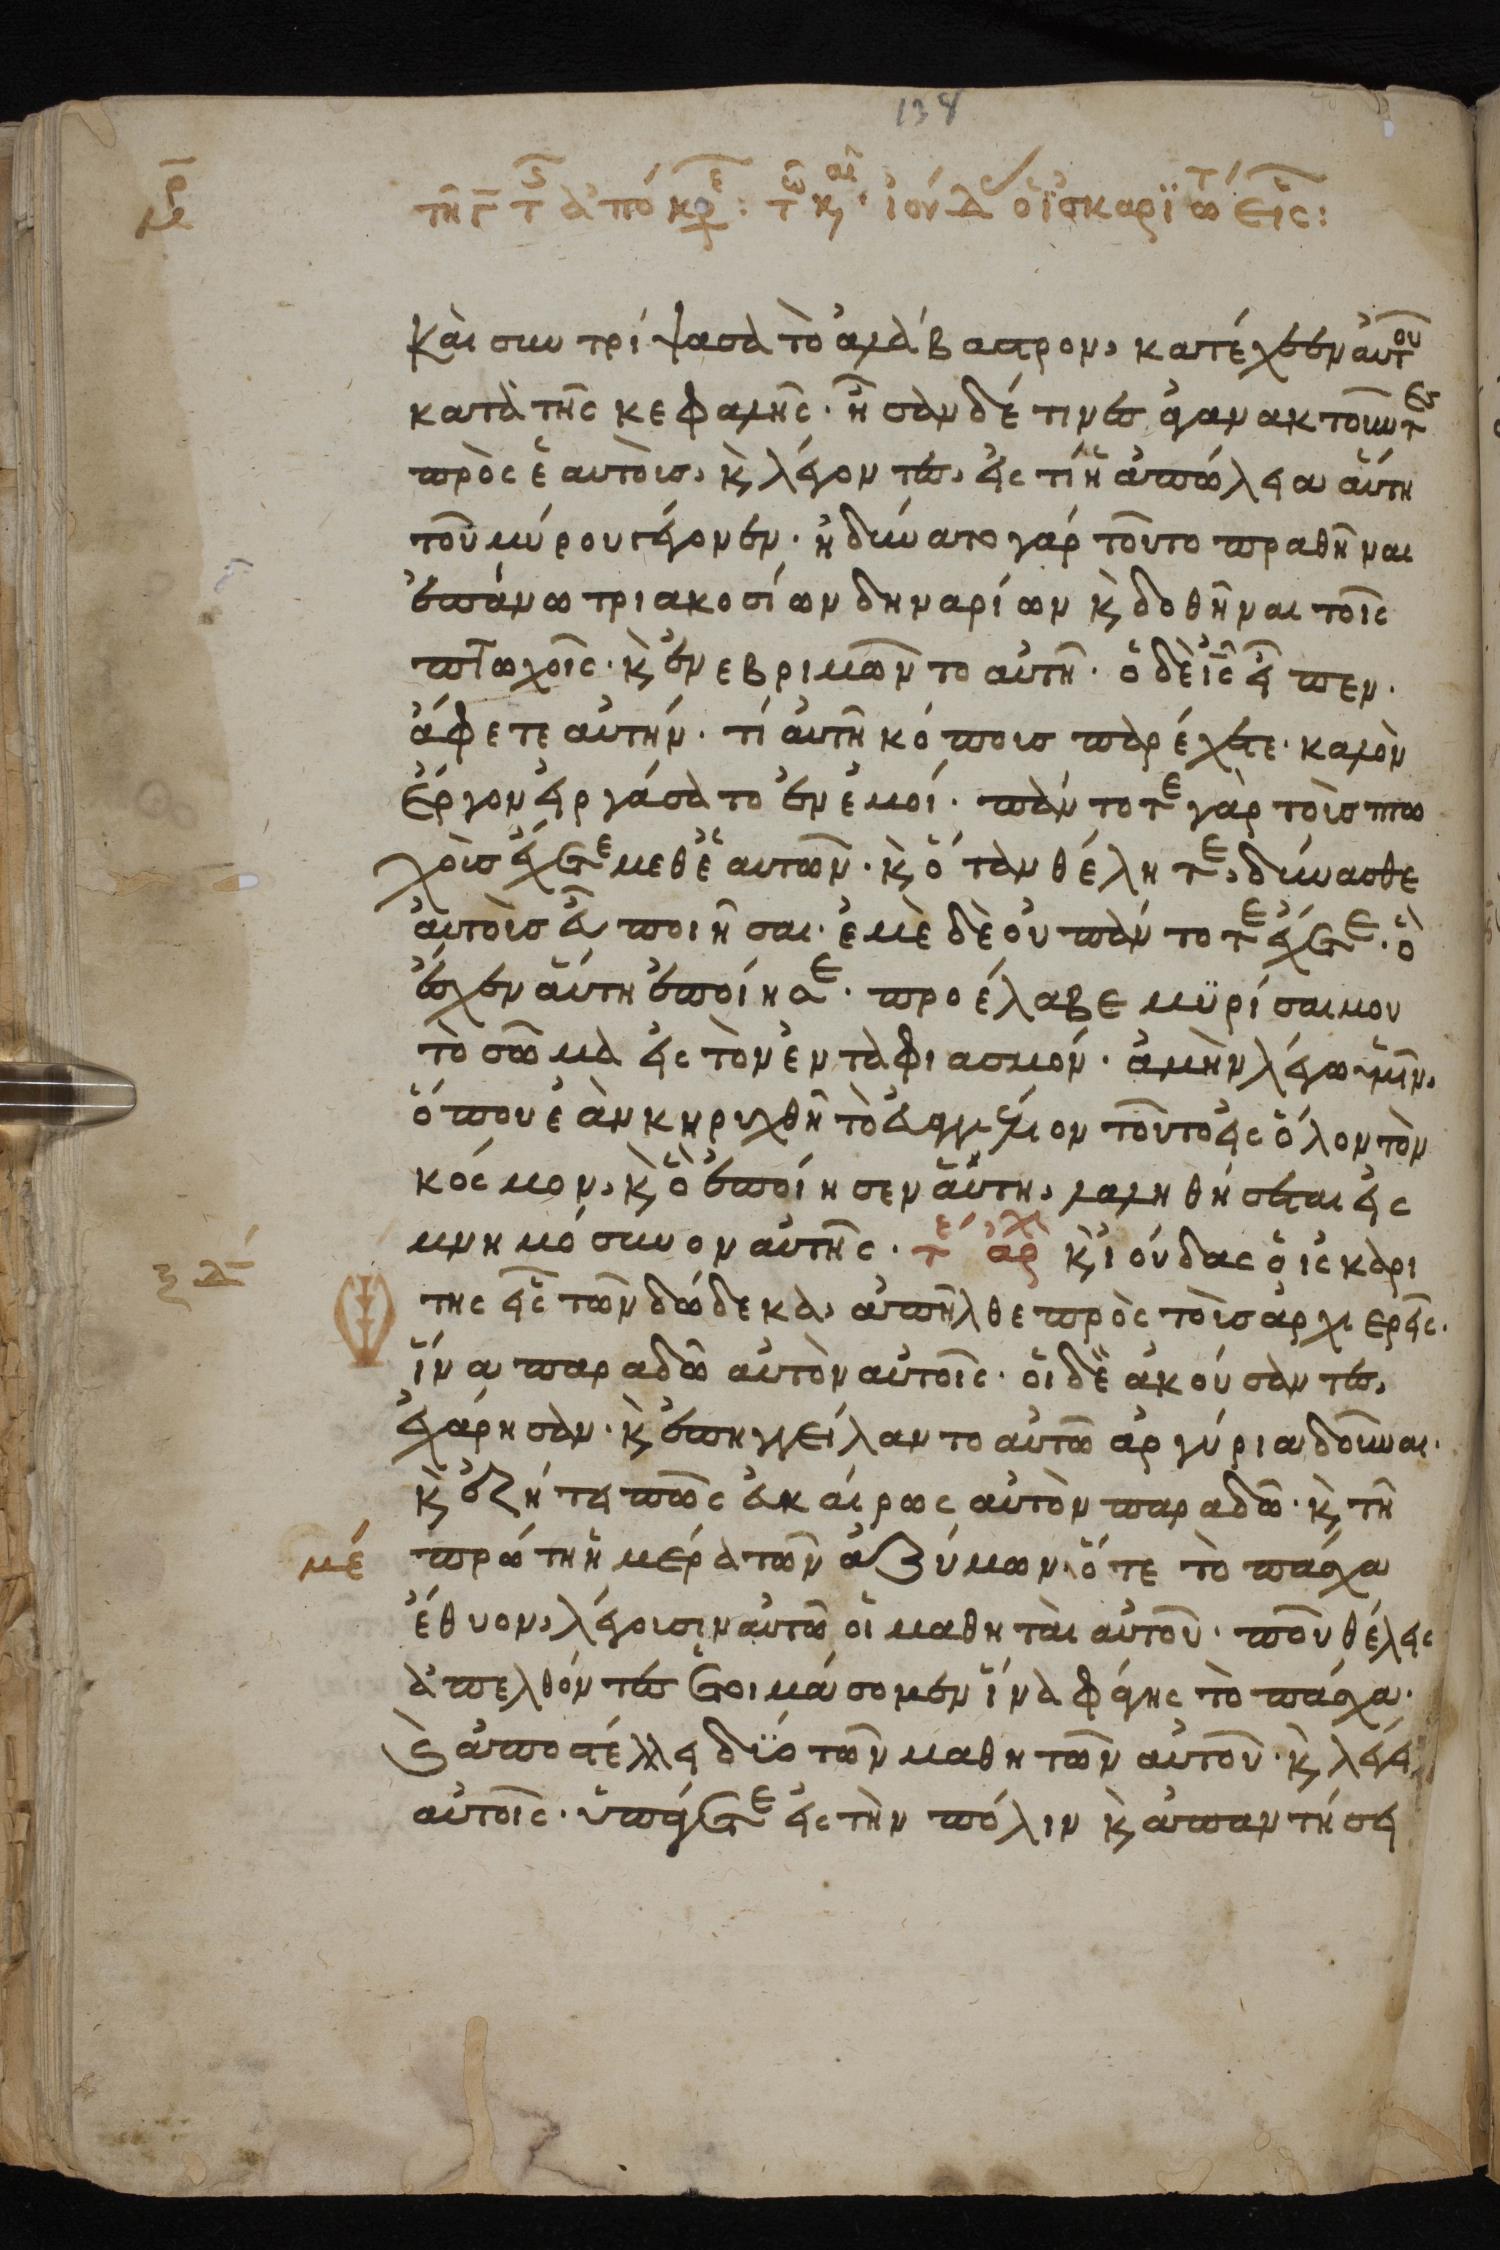 138
τῇ γ τ ἀπόκρ ε : τῶ κ αι ἰούδ ὁ ἰσκαριώτ εἷς :
καὶ συντρίψασα τὸ ἀλάβαστρον, κατέχεεν αὐτοῦ
κατὰ τῆς κεφαλῆς · ἦσαν δέ τινες ἀγανακτοῦντες
πρὸς ἑαυτοὺς, κ̀ λέγοντες, εἰς τί ἡ ἀπώλεια αὕτη
τοῦ μύρου γέγονεν · ἠδύνατο γάρ τοῦτο πραθῆναι
ἐπάνω τριακοσίων δηναρίων κ̀ δοθῆναι τοῖς
πτωχοῖς · κ̀ ἐνεβριμῶντο αὐτῇ · ὁ δὲ ις εἶπεν ·
ἄφετε αὐτήν · τί αὐτῇ κόπους παρέχετε · καλὸν
ἔργον εἰργάσατο ἐν ἐμοί · πάντοτε γὰρ τοὺς πτω
χοὺς ἔχετε μεθ ἑαυτῶν · κ̀ ὅταν θέλητε, δύνασθε
αὐτοὺς εὖ ποιῆσαι · ἐμὲ δὲ οὐ πάντοτε ἔχετε · ὃ
ἔσχεν αὕτη ἐποίησε · προέλαβε μϋρίσαι μου
τὸ σῶμα εἰς τὸν ἐνταφιασμόν · ἀμὴν λέγω ὑμῖν,
ὅπου ἐὰν κηρυχθῇ τὸ εὐαγγέλιον τοῦτο εἰς ὅλον τὸν
κόσμον, κ̀ ὃ ἐποίησεν αὕτη, λαληθήσεται εἰς
μνημόσυνον αὐτῆς · τέ ἀρχ κ̀ ἰούδας ὁ ισκαρι
ξδ
της εἷς τῶν δώδεκα, ἀπῆλθε πρὸς τοὺς ἀρχιερεῖς ·
ἵνα παραδῶ αὐτὸν αὐτοῖς · οἱ δὲ ἀκούσαντες,
ἐχάρησαν · κ̀ ἐπηγγείλαντο αὐτῶ ἀργύρια δοῦναι ·
κ̀ ἐζήτει πῶς εὐκαίρως αὐτὸν παραδῶ · κ̀ τῇ
με πρώτη ἡμέρα τῶν ἀζύμων, ὅτε τὸ πάσχα
ἔθυον, λέγουσιν αὐτῶ οἱ μαθηταὶ αὐτοῦ · ποῦ θέλεις
ἀπελθόντες ἑτοιμάσομεν ἵνα φάγης τὸ πάσχα ·
κ̀ ἀποστέλλει δϋο τῶν μαθητῶν αὐτοῦ · κ̀ λέγει
αὐτοῖς · ὑπάγετε εἰς τὴν πόλιν κ̀ ἀπαντήσει